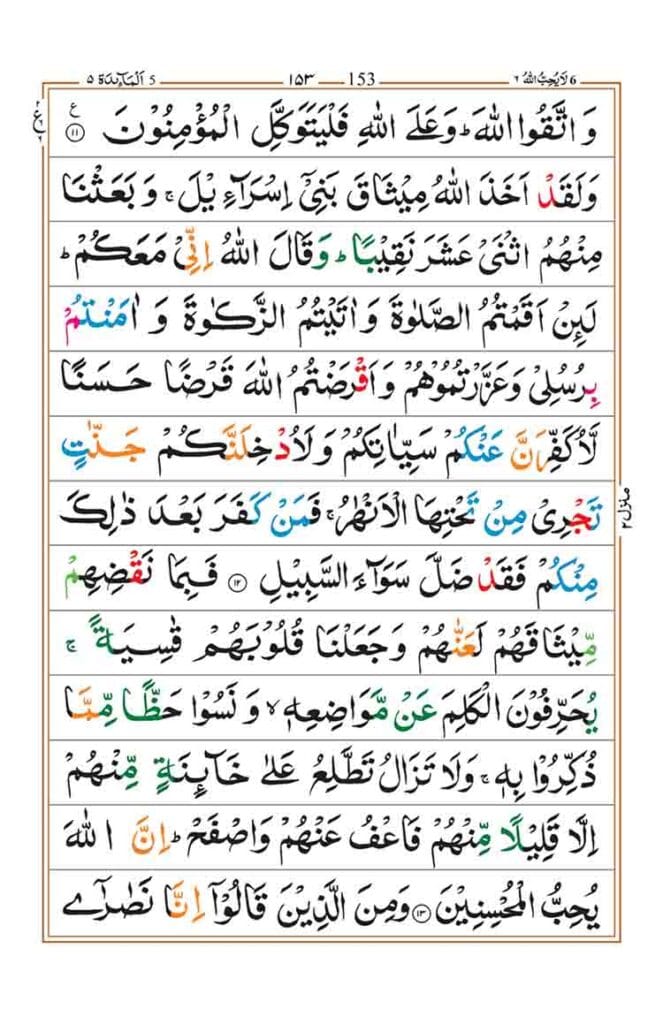 6 لَا یُحِبُّ اللّٰهُ ٦
153 ١٥٣
5 اَلْمَآئِدَة ٥
وَ اتَّقُوا اللّٰهَ ؕ وَ عَلَی اللّٰهِ فَلْیَتَوَكَّلِ الْمُؤْمِنُوْنَ ۧ ١١
ع
وَ لَقَدْ اَخَذَ اللّٰهُ مِیْثَاقَ بَنِیْۤ اِسْرَآءِیْلَ ۚ وَ بَعَثْنَا
مِنْهُمُ اثْنَیْ عَشَرَ نَقِیْبًا ؕ وَ قَالَ اللّٰهُ اِنِّیْ مَعَكُمْ ؕ
لَىِٕنْ اَقَمْتُمُ الصَّلٰوةَ وَ اٰتَیْتُمُ الزَّكٰوةَ وَ اٰمَنْتُمْ
بِرُسُلِیْ وَ عَزَّرْتُمُوْهُمْ وَ اَقْرَضْتُمُ اللّٰهَ قَرْضًا حَسَنًا
لَّاُكَفِّرَنَّ عَنْكُمْ سَیِّاٰتِكُمْ وَ لَاُدْخِلَنَّكُمْ جَنّٰتٍ
تَجْرِیْ مِنْ تَحْتِهَا الْاَنْهٰرُ ۚ فَمَنْ كَفَرَ بَعْدَ ذٰلِكَ
منزل ٢
مِنْكُمْ فَقَدْ ضَلَّ سَوَآءَ السَّبِیْلِ ١٢ فَبِمَا نَقْضِهِمْ
مِّیْثَاقَهُمْ لَعَنّٰهُمْ وَ جَعَلْنَا قُلُوْبَهُمْ قٰسِیَةً ۚ
یُحَرِّفُوْنَ الْكَلِمَ عَنْ مَّوَاضِعِهٖ ۙ وَ نَسُوْا حَظًّا مِّمَّا
ذُكِّرُوْا بِهٖ ۚ وَ لَا تَزَالُ تَطَّلِعُ عَلٰی خَآىِٕنَةٍ مِّنْهُمْ
اِلَّا قَلِیْلًا مِّنْهُمْ فَاعْفُ عَنْهُمْ وَ اصْفَحْ ؕ اِنَّ اللّٰهَ
یُحِبُّ الْمُحْسِنِیْنَ ١٣ وَ مِنَ الَّذِیْنَ قَالُوْۤا اِنَّا نَصٰرٰۤی